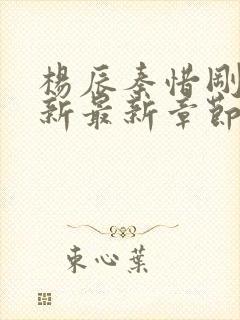 楊辰秦惜剛
新最新章節
束心葉